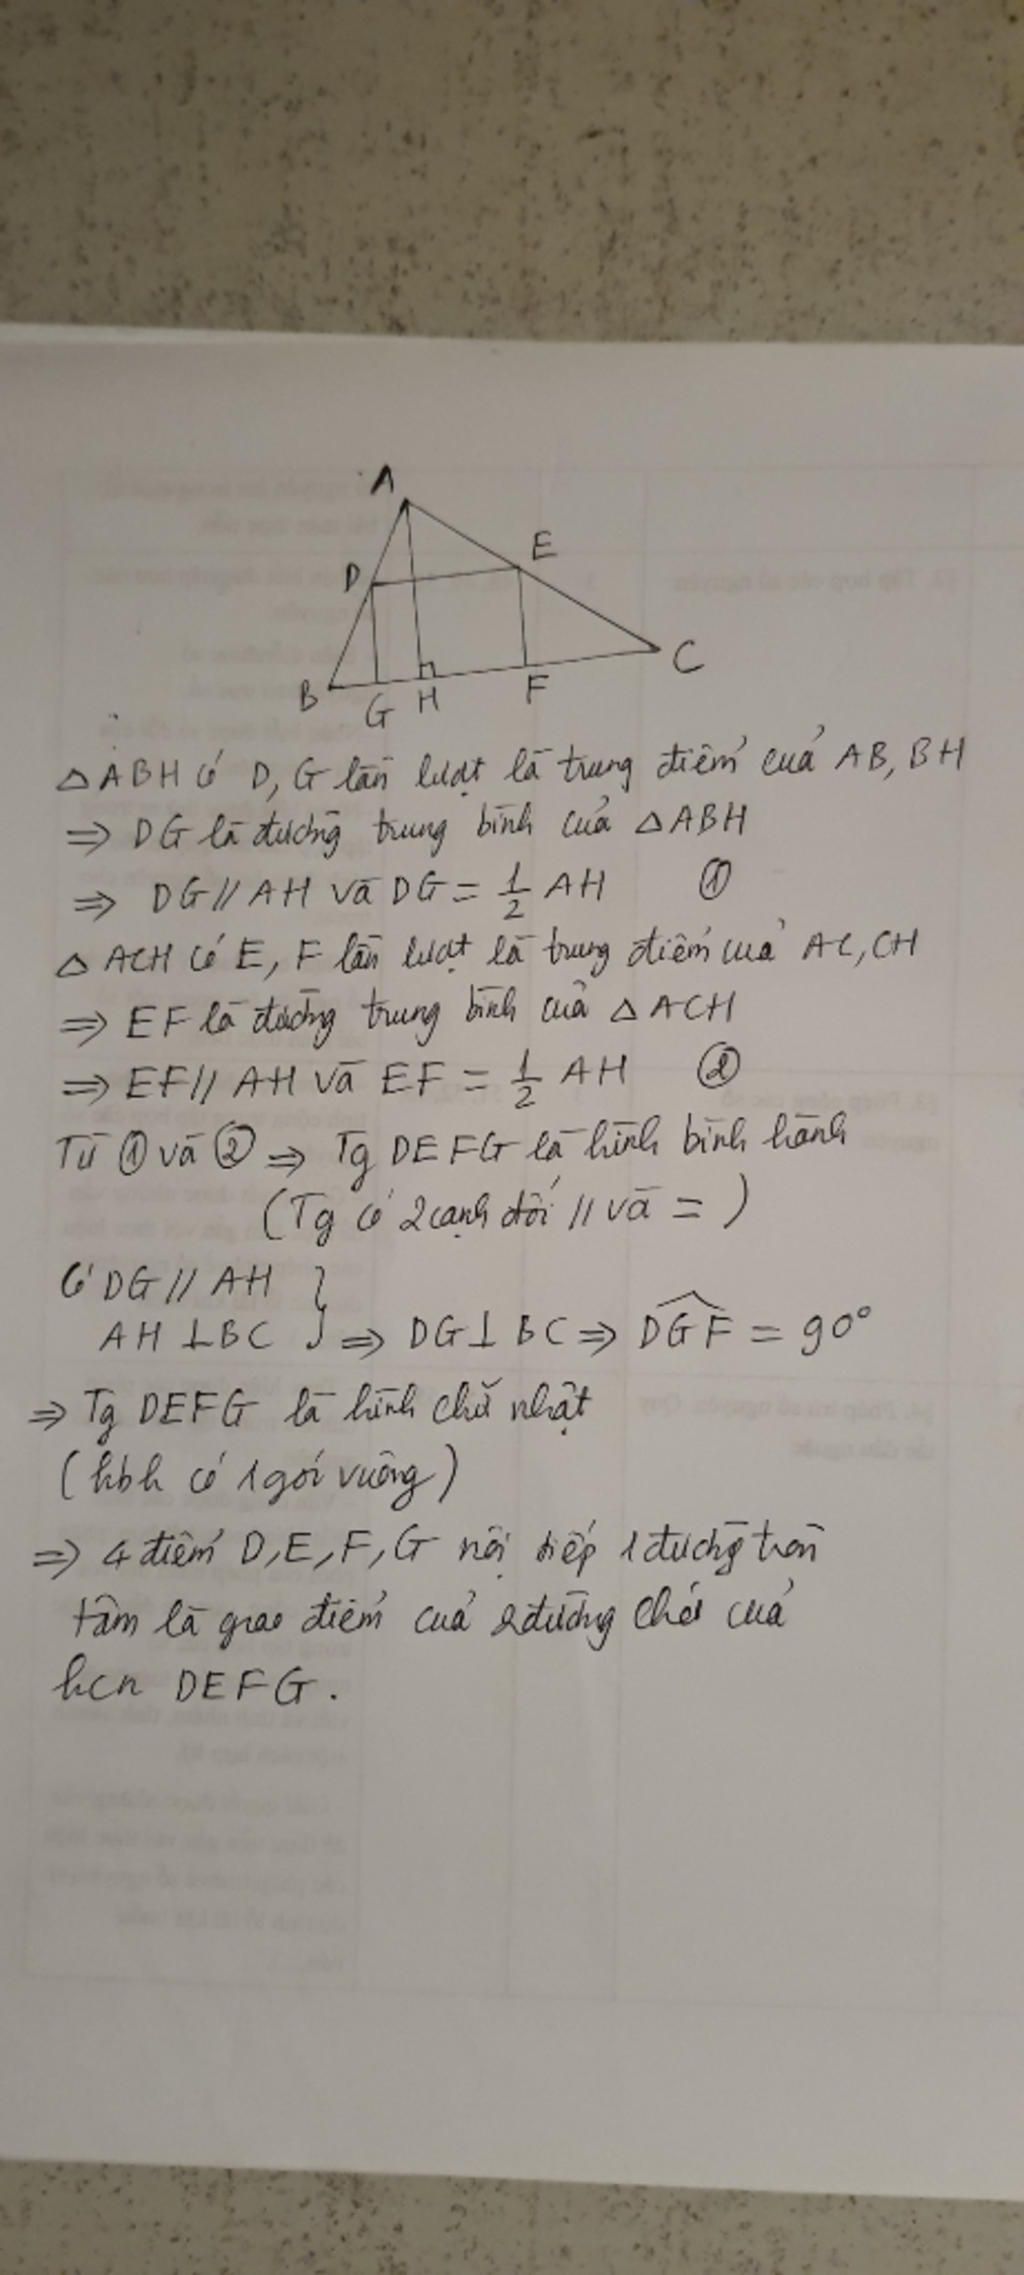 A
E
D
C
B
G
H
F
△ABH có D, G lần lượt là trung điểm của AB, BH
⇒ DG là đường trung bình của △ABH
⇒ DG // AH và DG = 1/2 AH ①
△ ACH có E, F lần lượt là trung điểm của AC, CH
⇒ EF là đường trung bình của △ ACH
⇒ EF // AH và EF = 1/2 AH ②
Từ ① và ② ⇒ Tg DEFG là hình bình hành
(Tg có 2 cạnh đối // và = )
Có DG // AH }
AH ⊥ BC } ⇒ DG ⊥ BC ⇒ \widehat{DGF} = 90°
⇒ Tg DEFG là hình chữ nhật
(hbh có 1 góc vuông)
⇒ 4 điểm D, E, F, G nội tiếp 1 đường tròn
tâm là giao điểm của 2 đường chéo của
hcn DEFG.